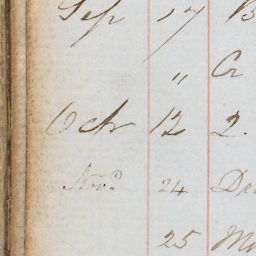 Sep 17 B
" Cr
Octr 12 2.
Novr. 24 Dr
25 Mo